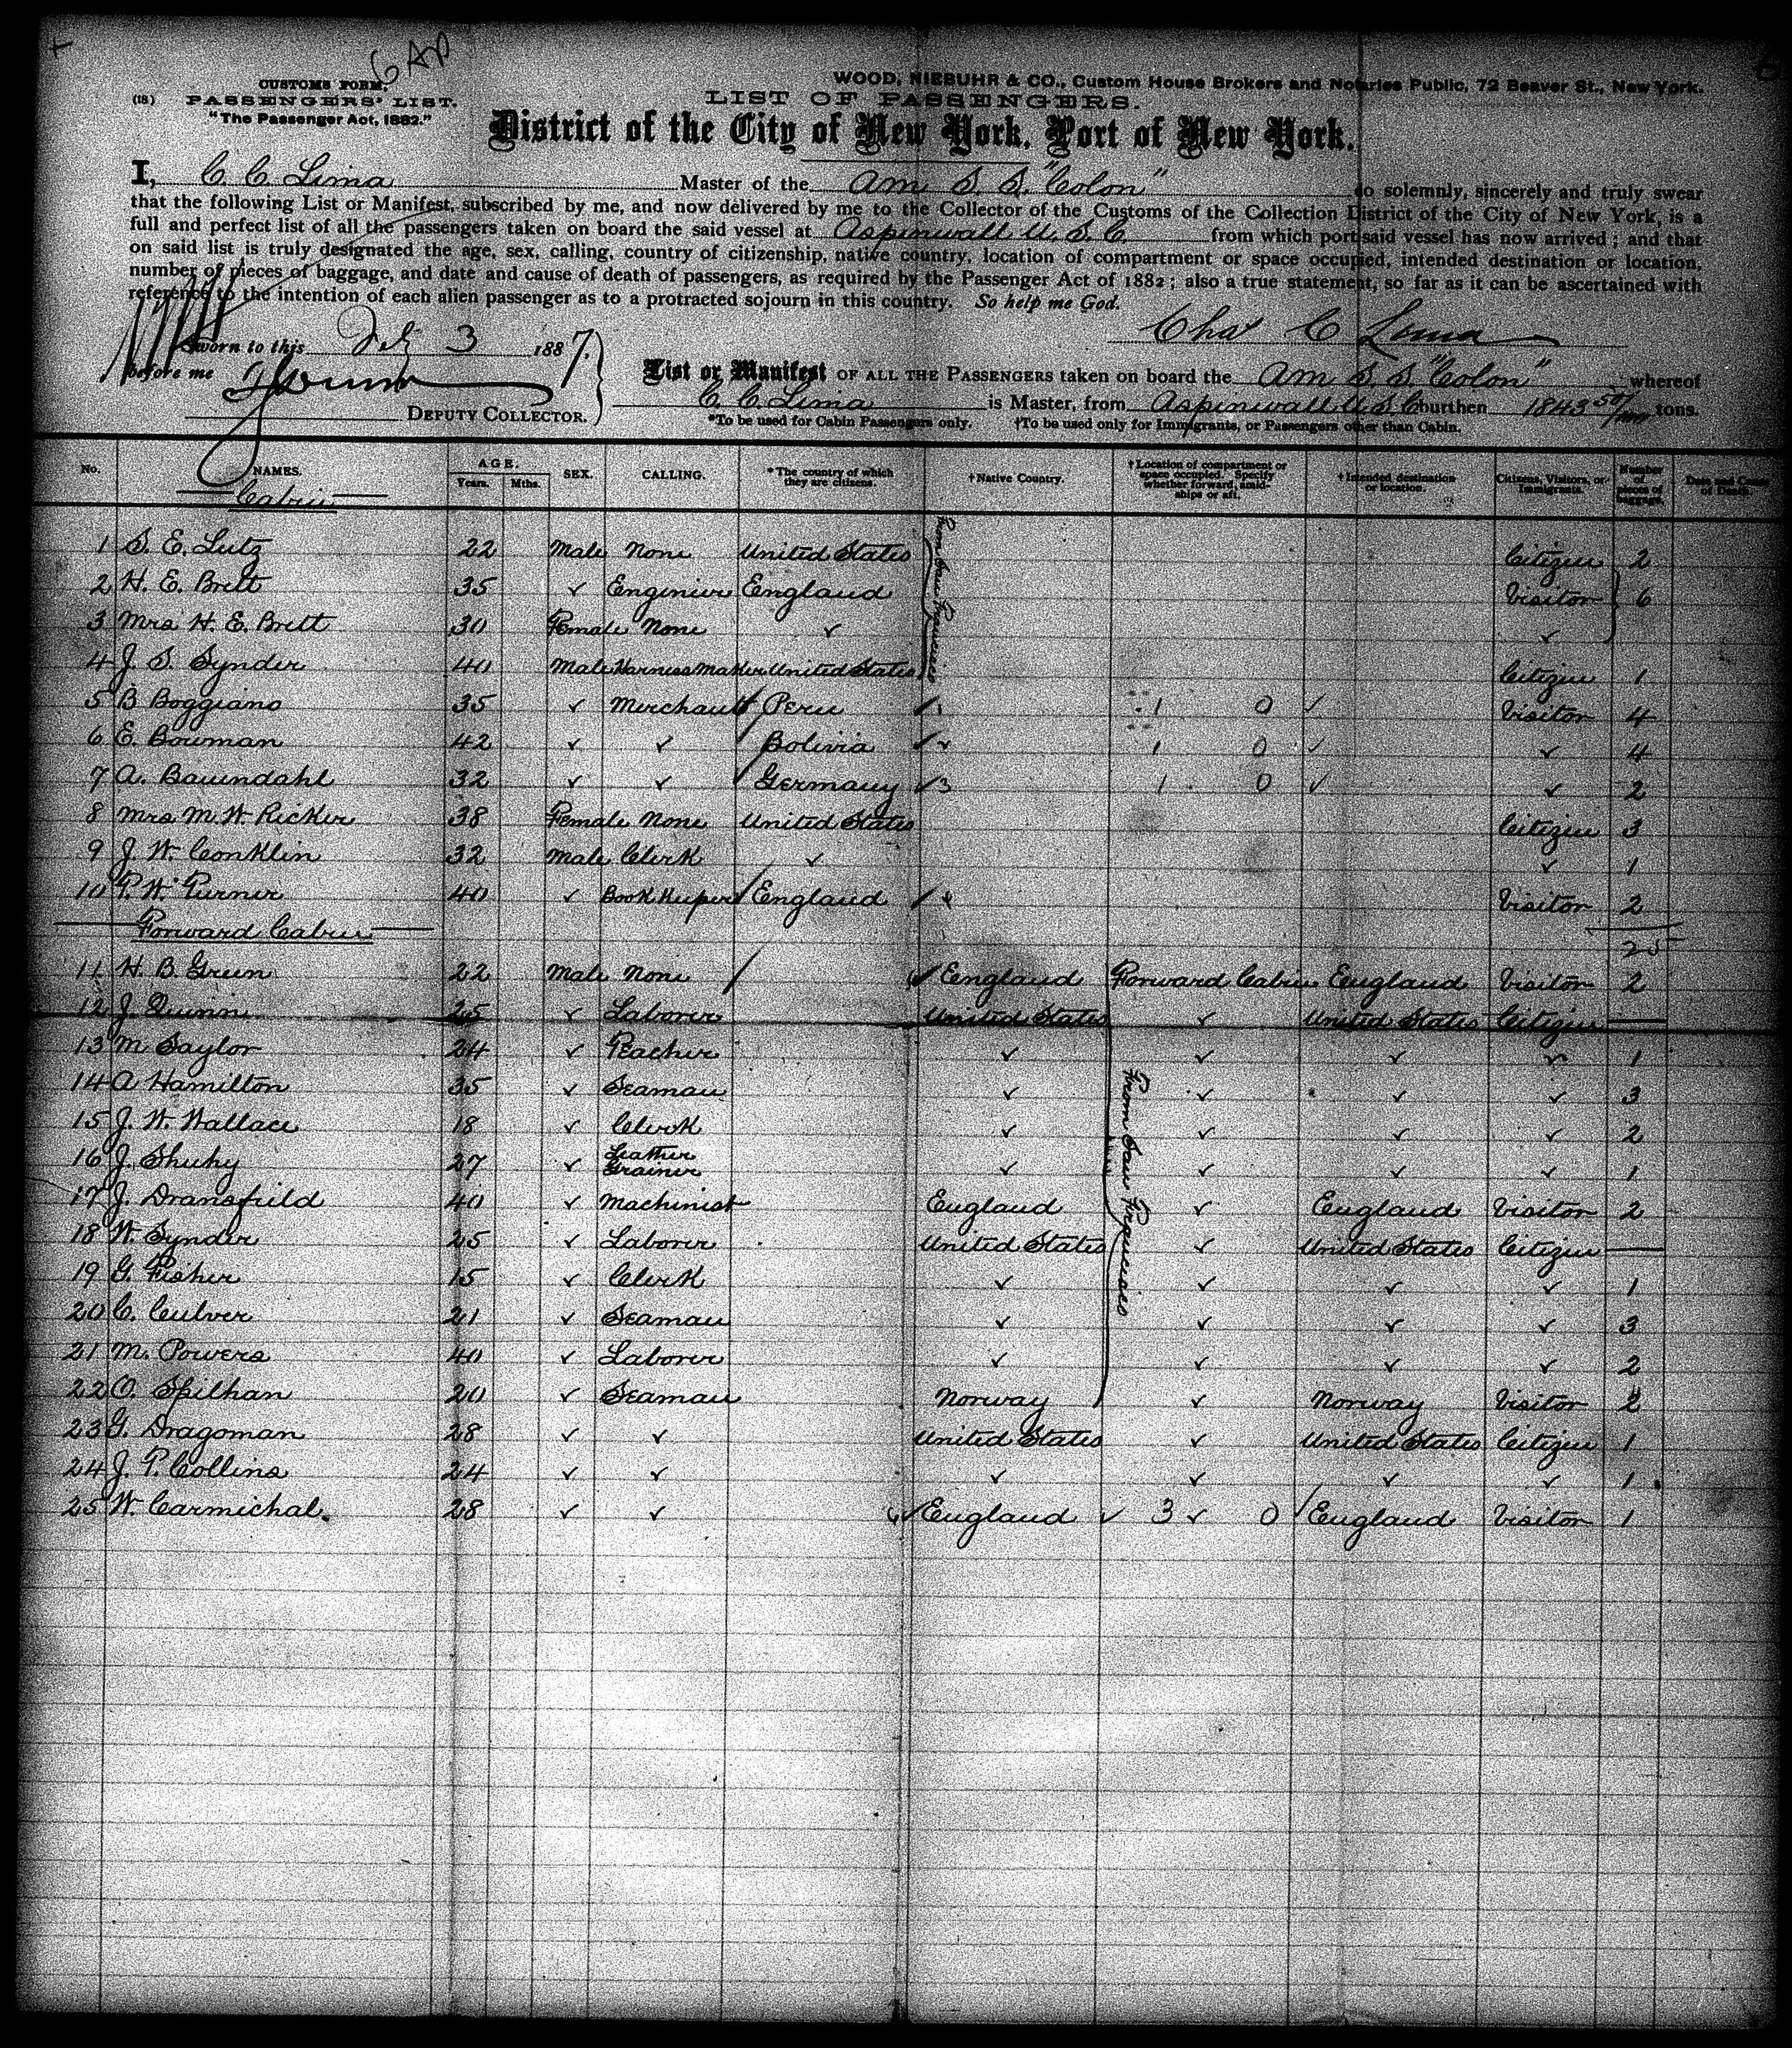 6 Ap
CUSTOMS FORM.
(18) PASSENGERS' LIST.
"The Passenger Act, 1882."
WOOD, NIEBUHR & CO., Custom House Brokers and Notaries Public, 72 Beaver St., New York.
LIST OF PASSENGERS.
District of the City of New York, Port of New York.
I, C. C. Lima Master of the Am S. S. "Colon" do solemnly, sincerely and truly swear
that the following List or Manifest, subscribed by me, and now delivered by me to the Collector of the Customs of the Collection District of the City of New York, is a
full and perfect list of all the passengers taken on board the said vessel at Aspinwall U. S. C. from which port said vessel has now arrived; and that
on said list is truly designated the age, sex, calling, country of citizenship, native country, location of compartment or space occupied, intended destination or location,
number of pieces of baggage, and date and cause of death of passengers, as required by the Passenger Act of 1882; also a true statement, so far as it can be ascertained with
reference to the intention of each alien passenger as to a protracted sojourn in this country. So help me God.
Chas C Lima
Sworn to this 3 1887.
before me
DEPUTY COLLECTOR.
List or Manifest OF ALL THE PASSENGERS taken on board the Am S. S. "Colon" whereof
C. C. Lima is Master, from Aspinwall U S C burthen 1843 50/100 tons.
*To be used for Cabin Passengers only. †To be used only for Immigrants, or Passengers other than Cabin.
No. NAMES. AGE. Years. Mths. SEX. CALLING. *The country of which they are citizens. †Native Country. †Location of compartment or space occupied. Specify whether forward, amidships or aft. †Intended destination or location. Citizens, Visitors, or Immigrants. Number of pieces of baggage. Date and Cause of Death.
Cabin
From San Francisco
1 S. E. Lutz 22 Male None United States Citizen 2
2 H. E. Brett 35 ✓ Enginier England Visitor 6
3 Mrs H. E. Brett 30 Female None ✓ ✓
4 J. S. Synder 40 Male Harness Maker United States Citizen 1
5 B Boggiano 35 ✓ Merchant Peru ✓ 1 1 0 ✓ Visitor 4
6 E. Bowman 42 ✓ ✓ Bolivia ✓ 2 1 0 ✓ ✓ 4
7 A. Bauindahl 32 ✓ ✓ Germany ✓ 3 1 0 ✓ ✓ 2
8 Mrs M. W. Ricker 38 Female None United States Citizen 3
9 J. W. Conklin 32 Male Clerk ✓ ✓ 1
10 T. W. Turner 40 ✓ Book Keeper England ✓ 4 Visitor 2
Forward Cabin 25
11 H. B. Green 22 Male None ✓ England Forward Cabin England Visitor 2
12 J. Quinn 25 ✓ Laborer United States ✓ United States Citizen —
13 M Saylor 24 ✓ Teacher ✓ ✓ ✓ ✓ 1
14 A Hamilton 35 ✓ Seaman ✓ ✓ ✓ ✓ 3
15 J. W. Wallace 18 ✓ Clerk ✓ ✓ ✓ ✓ 2
16 J. Shuhy 27 ✓ Leather Grainer ✓ ✓ ✓ ✓ 1
17 J. Dransfield 40 ✓ Machinist England ✓ England Visitor 2
18 W. Synder 25 ✓ Laborer United States ✓ United States Citizen —
19 G. Fisher 15 ✓ Clerk ✓ ✓ ✓ ✓ 1
20 C. Culver 21 ✓ Seaman ✓ ✓ ✓ ✓ 3
21 M. Powers 40 ✓ Laborer ✓ ✓ ✓ ✓ 2
22 O. Spilhan 20 ✓ Seaman Norway ✓ Norway Visitor 2
23 G. Dragoman 28 ✓ ✓ United States ✓ United States Citizen 1
24 J. P. Collins 24 ✓ ✓ ✓ ✓ ✓ ✓ 1
25 W. Carmichal 28 ✓ ✓ ✓ England ✓ 3 ✓ 0 England Visitor 1
From San Francisco